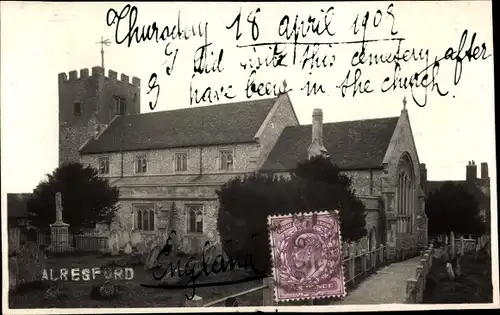 Thursday 18 april 190
I did visit this cemetery, after
I have been in the church.
ALRESFORD
England